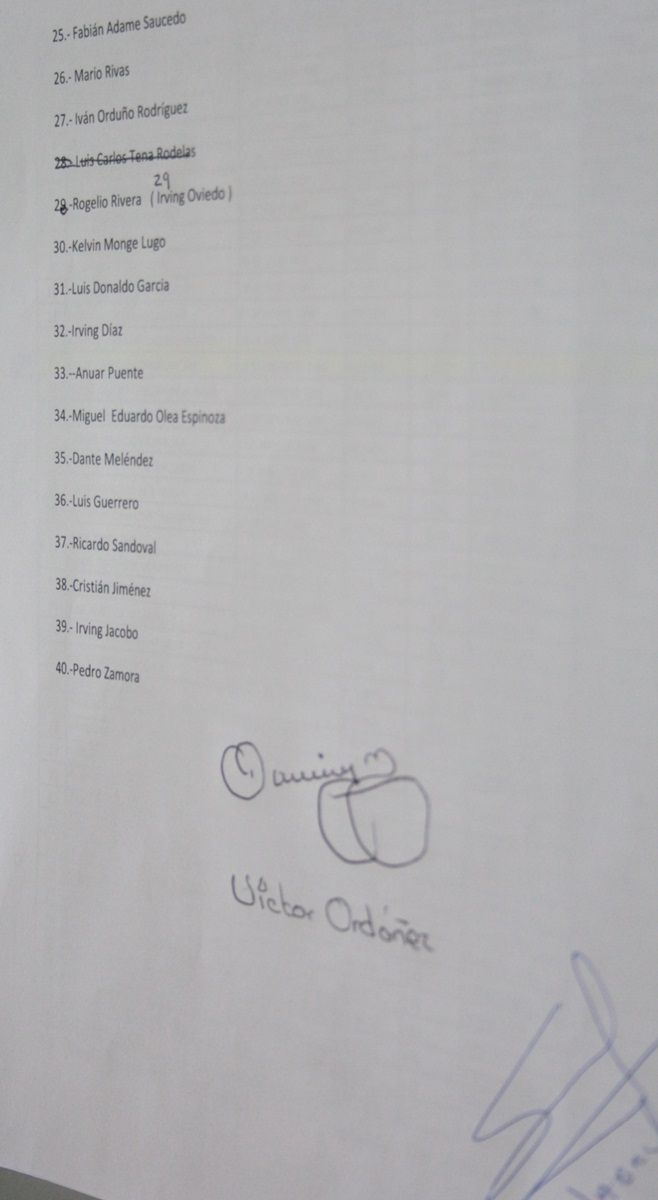 25.- Fabián Adame Saucedo
26.- Mario Rivas
27.- Iván Orduño Rodríguez
28.- Luis Carlos Tena Rodelas
29
28.-Rogelio Rivera ( Irving Oviedo )
30.-Kelvin Monge Lugo
31.-Luis Donaldo Garcia
32.-Irving Díaz
33.--Anuar Puente
34.-Miguel Eduardo Olea Espinoza
35.-Dante Meléndez
36.-Luis Guerrero
37.-Ricardo Sandoval
38.-Cristián Jiménez
39.- Irving Jacobo
40.-Pedro Zamora
Víctor Ordóñez